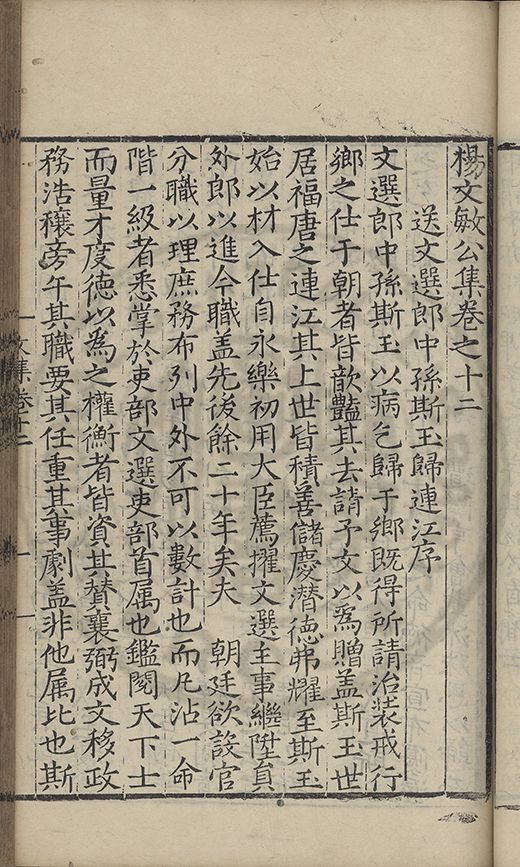 楊文敏公集卷之十二
送文選郎中孫斯玉歸連江序
文選郎中孫斯玉以病乞歸于鄉既得所請治裝戒行
鄉之仕于朝者皆歆豔其去請予文以爲贈蓋斯玉世
居福唐之連江其上世皆積善儲慶潛德弗耀至斯玉
始以材入仕自永樂初用大臣薦擢文選主事繼陞員
外郎以進今職蓋先後餘二十年矣夫 朝廷欲設官
分職以理庶務布列中外不可以數計也而凡沾一命
階一級者悉掌於吏部文選吏部首属也鑑閱天下士
而量才度德以爲之權衡者皆資其賛襄弼成文移政
務浩穰旁午其職要其任重其事劇盖非他属比也斯
文集卷十二